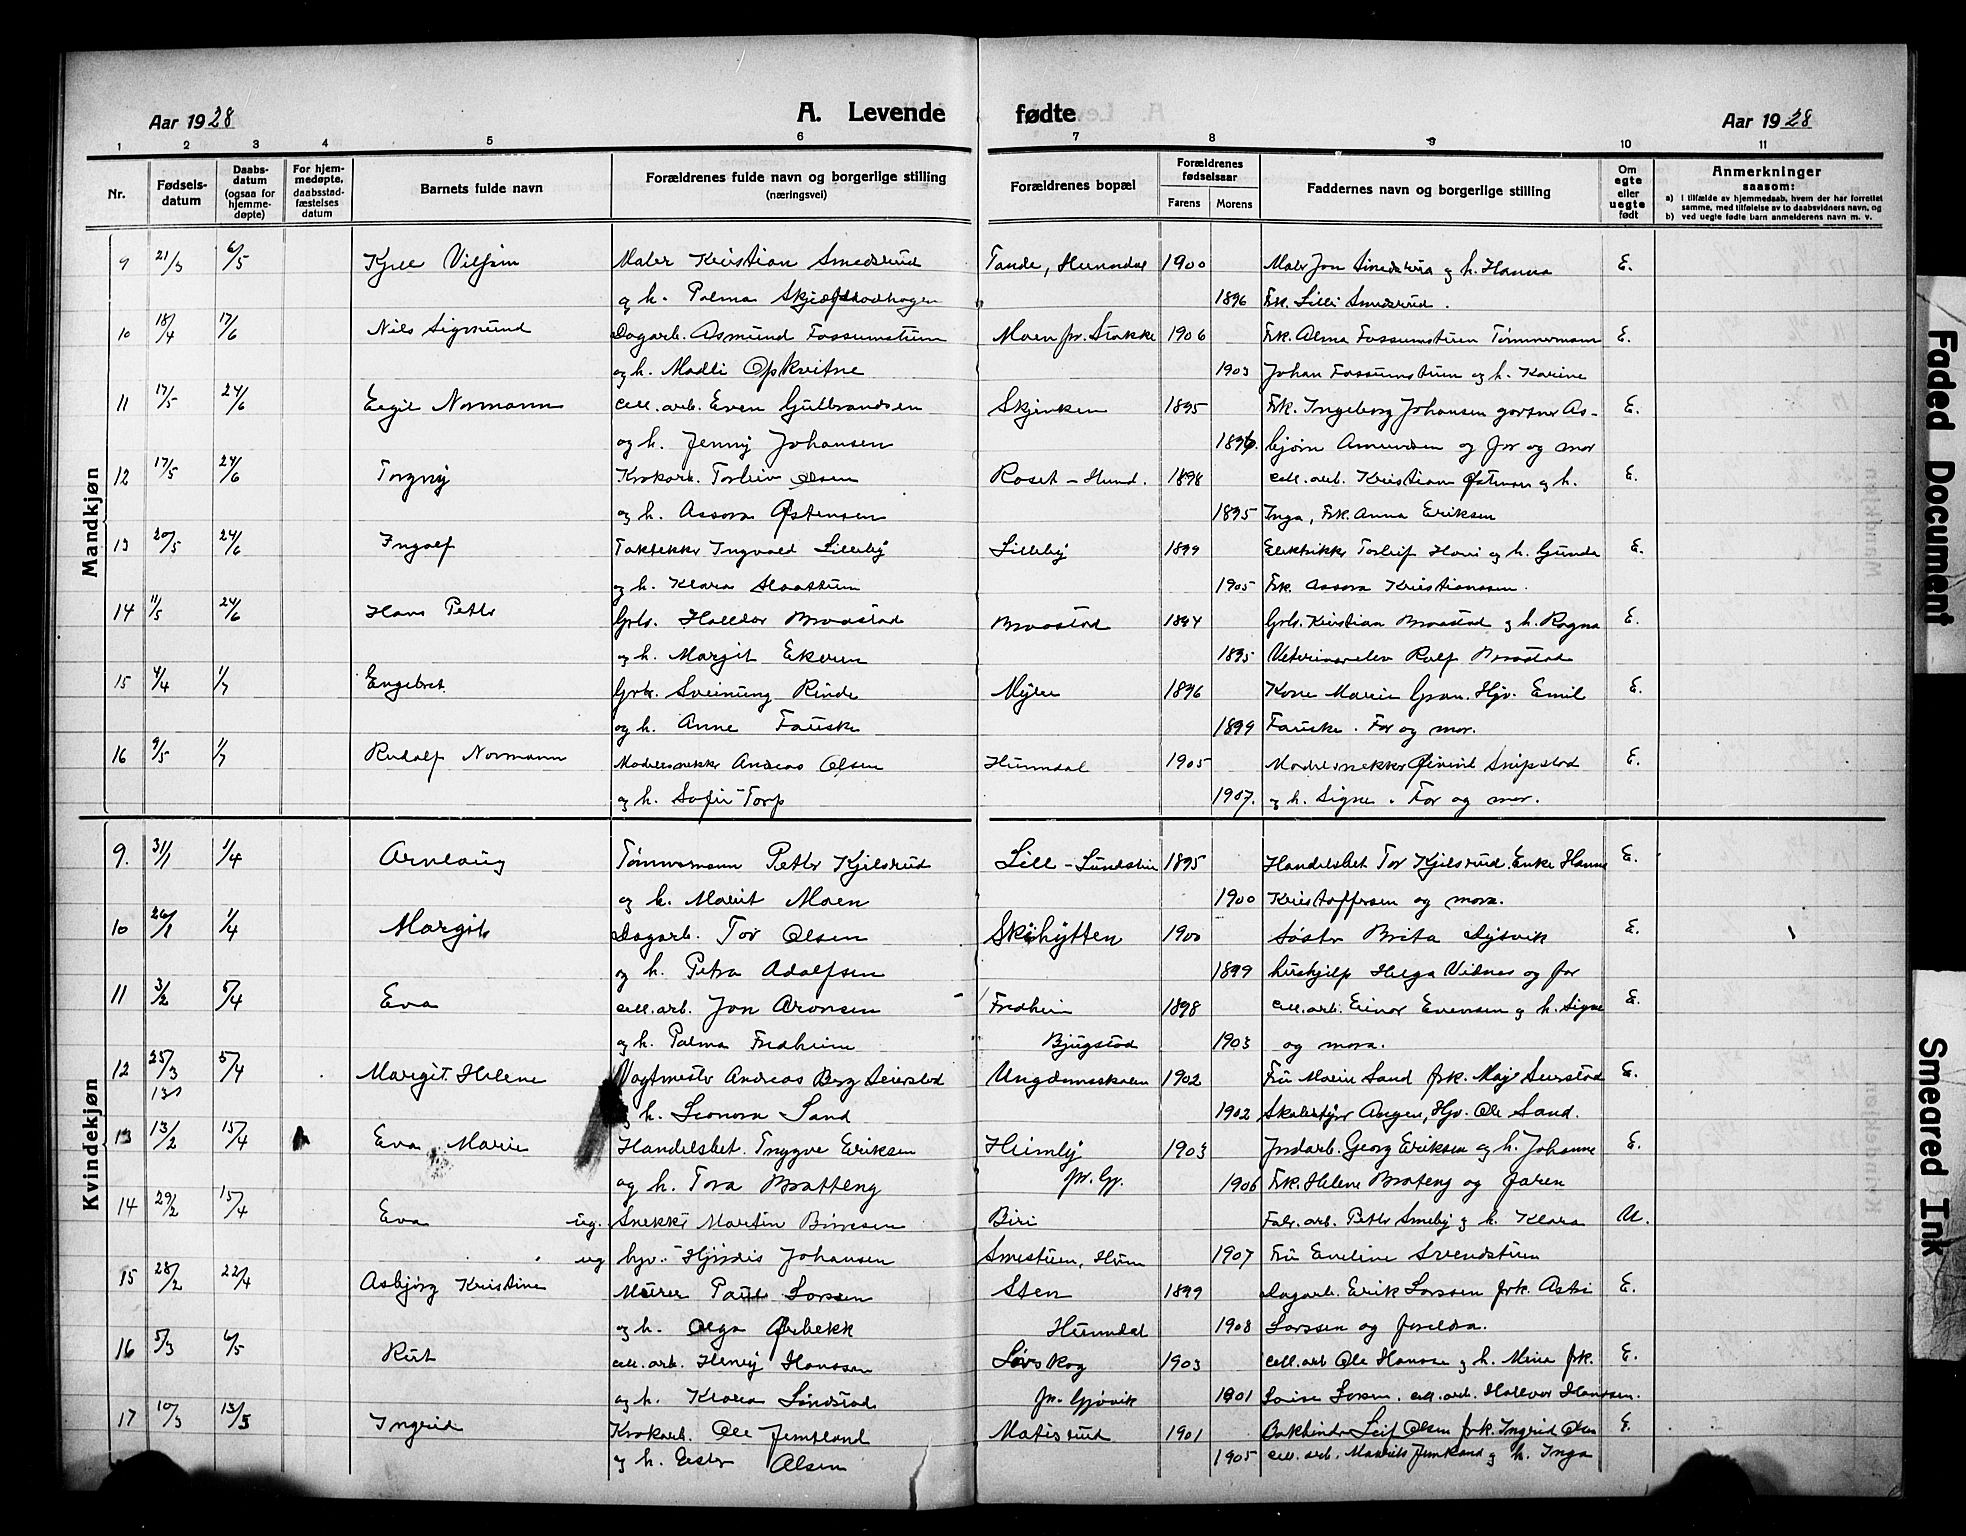 Aar 1928
A. Levende fødte
Aar 1928
1 2 3 4 5 6 7 8 9 10 11
Nr.
Fødsels-
datum
Daabs-
datum
(ogsaa for
hjemme-
døpte)
For hjem-
medøpte,
daabsstad-
fæstelses
datum
Barnets fulde navn
Forældrenes fulde navn og borgerlige stilling
(næringsvei)
Forældrenes bopæl
Forældrenes
fødselsaar
Farens Morens
Faddernes navn og borgerlige stilling
Om
egte
eller
uegte
født
Anmerkninger
saasom:
a) I tilfælde av hjemmedaab, hvem der har forrettet
samme, med tilføielse av to daabsvidners navn, og
b) ved uegte fødte barn anmelderens navn m. v.
Mandkjøn
9 21/3 6/5 Kjell Maler Kristian Smedsrud Tande, Hunndal 1900 Maler Jon Smedsrud og h. Hanna E.
og h. Palma 1896 Frk. Lilli Smedsrud.
10 18/4 17/6 Nils Sigmund Dagarb. Asmund Fossumstuen Moen pr. Stokke 1906 Frk. Alma Fossumstuen Tømmermann E.
og h. Madli Opkvitne 1903 Johan Fossumstuen og h. Karine
11 17/5 24/6 Egil Normann cell. arb. Even Gulbrandsen Skjerken 1895 Frk. Ingeborg Johansen gartner As- E.
og h. Jenny Johansen 1896. bjørn Amundsen og far og mor
12 17/5 24/6 Torgny Krokarb. Torleiv Olsen Roset - Hund. 1898 cell. arb. Kristian Østensen og h. E.
og h. Assora Østensen 1895 Inga, Frk. Anna Eriksen
13 20/5 24/6 Ingolf Taktekker Ingvald Lilleby Lilleby 1899 Elektrikker Torleif og h. Gunda E.
og h. Klara 1905 Frk. Assora Kristianssen.
14 11/5 24/6 Hans Petter Grbr. Halldor Braastad Braastad 1894 Grbr. Kristian Braastad og h. Ragna E.
og h. Margit Ekeren 1895 Veterinærelev Rolf Braastad
15 4/4 1/7 Engebret Grbr. Sveinung Rinde Myler 1896 Kone Marie Gran. Hjv. Emil E.
og h. Anne Fauske 1899 Fauske. Far og mor.
16 9/5 1/7 Rudolf Normann Modelsnekker Andreas Olsen Hunndal 1905 Modelsnekker Øivind Snipstad E.
og h. Sofie Torp 1907. og h. Signe. Far og mor.
Kvindekjøn
9. 31/1 1/4 Arnlaug Tømmermann Petter Kjelsrud Lill-Lundstein 1895 Handelsbet. Tor Kjelsrud. Enke Hanna E.
og h. Marit Moen 1900 Kristoffersen og mora.
10 26/1 1/4 Margit Dagarb. Tor Olsen Skihytten 1900 Søster Brita Dysvik E.
og h. Petra Adolfsen 1899 hushjelp Helga Vidnes og far
11 3/2 5/4 Eva cell. arb. Jon Aronsen Fredheim 1898 cell. arb. Einar Evensen og h. Signe E.
og h. Palma Fredheim Bjugstad 1903 og mora.
12 25/3 5/4 Margit Helene Vogtmester Andreas Berg Seierstad Ungdomsskolen 1902 Fru Marie Sand frk. Maj Seierstad E.
og h. Leonora Sand 1902 Skolestyrer Angen, Hjv. Ole Sand.
13 13/2 15/4 Eva Marie Handelsbet. Trygve Eriksen Heimly 1903 Jordarb. Georg Eriksen og h. Johanne E.
og h. Tora Bratteng pr. Gj. 1906 Frk. Helene Bratteng og faren
14 29/2 15/4 Eva ug. Snekker Martin Biri Fabr. arb. Petter Smeby og h. Klara U.
ug. Hjørdis Johansen Smestuen, Hun 1907 Fru Eveline Svendstuen
15 28/2 22/4 Asbjørg Kristine Murer Paul Larsen Sten 1899 Dagarb. Erik Larssen frk. Astri E.
og h. Olga Ørbekk Hunndal 1908 Larssen og foreldra.
16 5/3 6/5 Rut cell. arb. Henry Hanssen Løvskog 1903 cell. arb Ole Hansse og h. Mina frk. E.
og h. Klara Sandstad pr. Gjøvik 1901 Lovise Larsen. cell. arb. Hallvor Hanssen.
17 10/3 13/5 Ingrid Krokarb. Ole Jemtland Matisrud 1901 Bokbinder Leif Olsen frk. Ingrid Olsen E.
og h. Ester Olsen 1905 cell. arb. Mauritz Jemtland og h. Inga
Faded Document
Smeared Ink